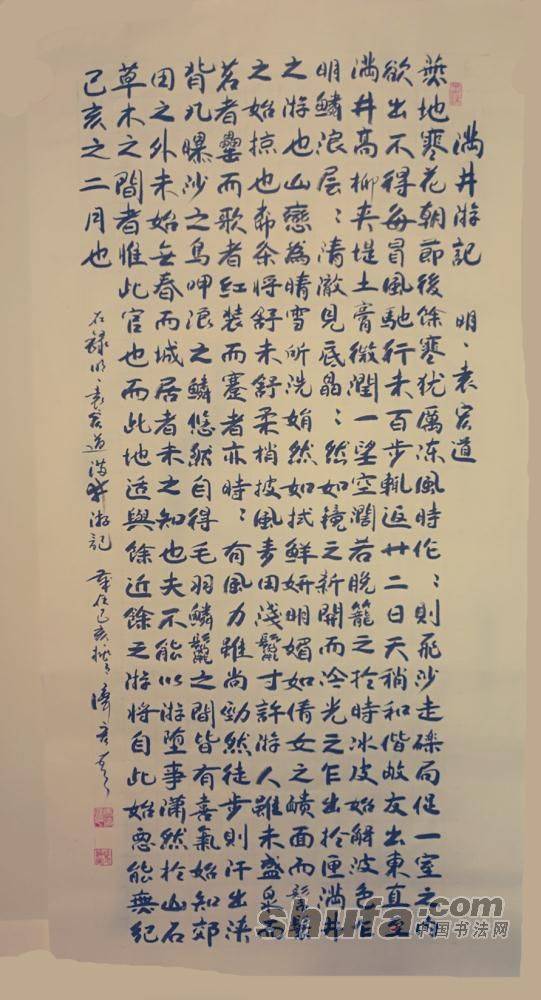 满井游記 明、袁宏道
燕地寒花朝節後餘寒犹厲冻風時作：則飛沙走礫局促一室之内
欲出不得每冒風馳行未百步輒返廿二日天稍和偕故友出東直至
满井高柳夹堤土膏微潤一望空闊若脱籠之於時冰皮始解波色乍
明鱗浪层：清澈見底晶：然如镜之新開而冷光之乍出於匣满井
之游也山巒為晴雪所洗娟然如拭鲜妍明媚如倩女之靧面而髻鬟
之始掠也柳条将舒未舒柔梢披風麦田淺鬣寸許游人雖未盛泉而
茗者罍而歌者红装而蹇者亦時：有風力雖尚勁然徒步則汗出浹
背凡曝沙之鸟呷浪之鱗悠然自得毛羽鱗鬣之間皆有喜氣始知郊
田之外未始无春而城居者未之知也夫不能以游堕事潇然於山石
草木之間者惟此官也而此地适與餘近餘之游将自此始恶能無紀
己亥之二月也
右録明、袁宏道满井游記 岁在己亥
shufa.com
中国书法网